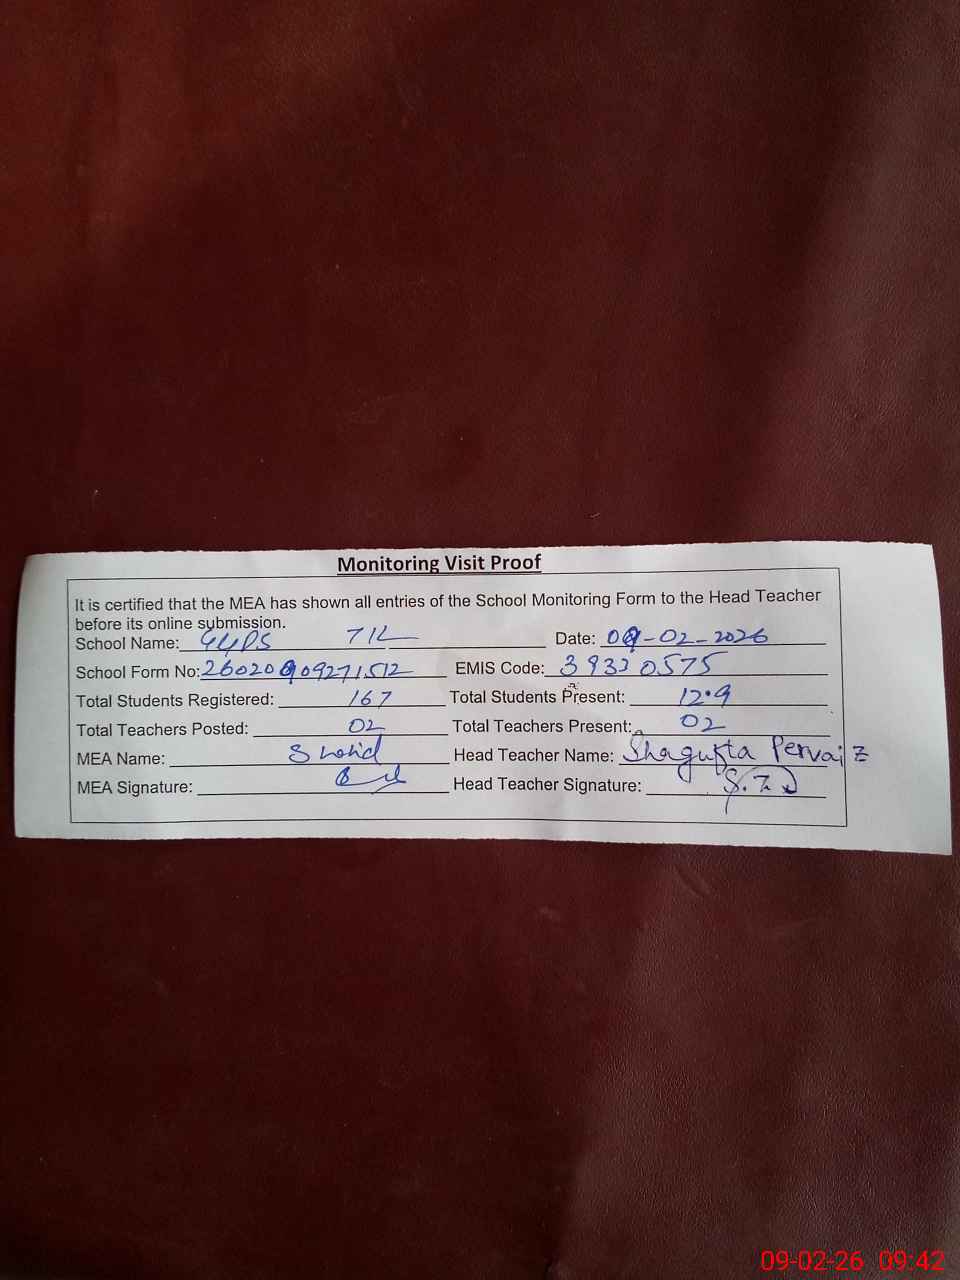 Monitoring Visit Proof
It is certified that the MEA has shown all entries of the School Monitoring Form to the Head Teacher
before its online submission.
School Name: GGPS 71L Date: 09-02-2026
School Form No: 26020909271512 EMIS Code: 39330575
Total Students Registered: 167 Total Students Present: 129
Total Teachers Posted: 02 Total Teachers Present: 02
MEA Name: Shahid Head Teacher Name: Shagufta Pervaiz
MEA Signature: Head Teacher Signature:
09-02-26 09:42